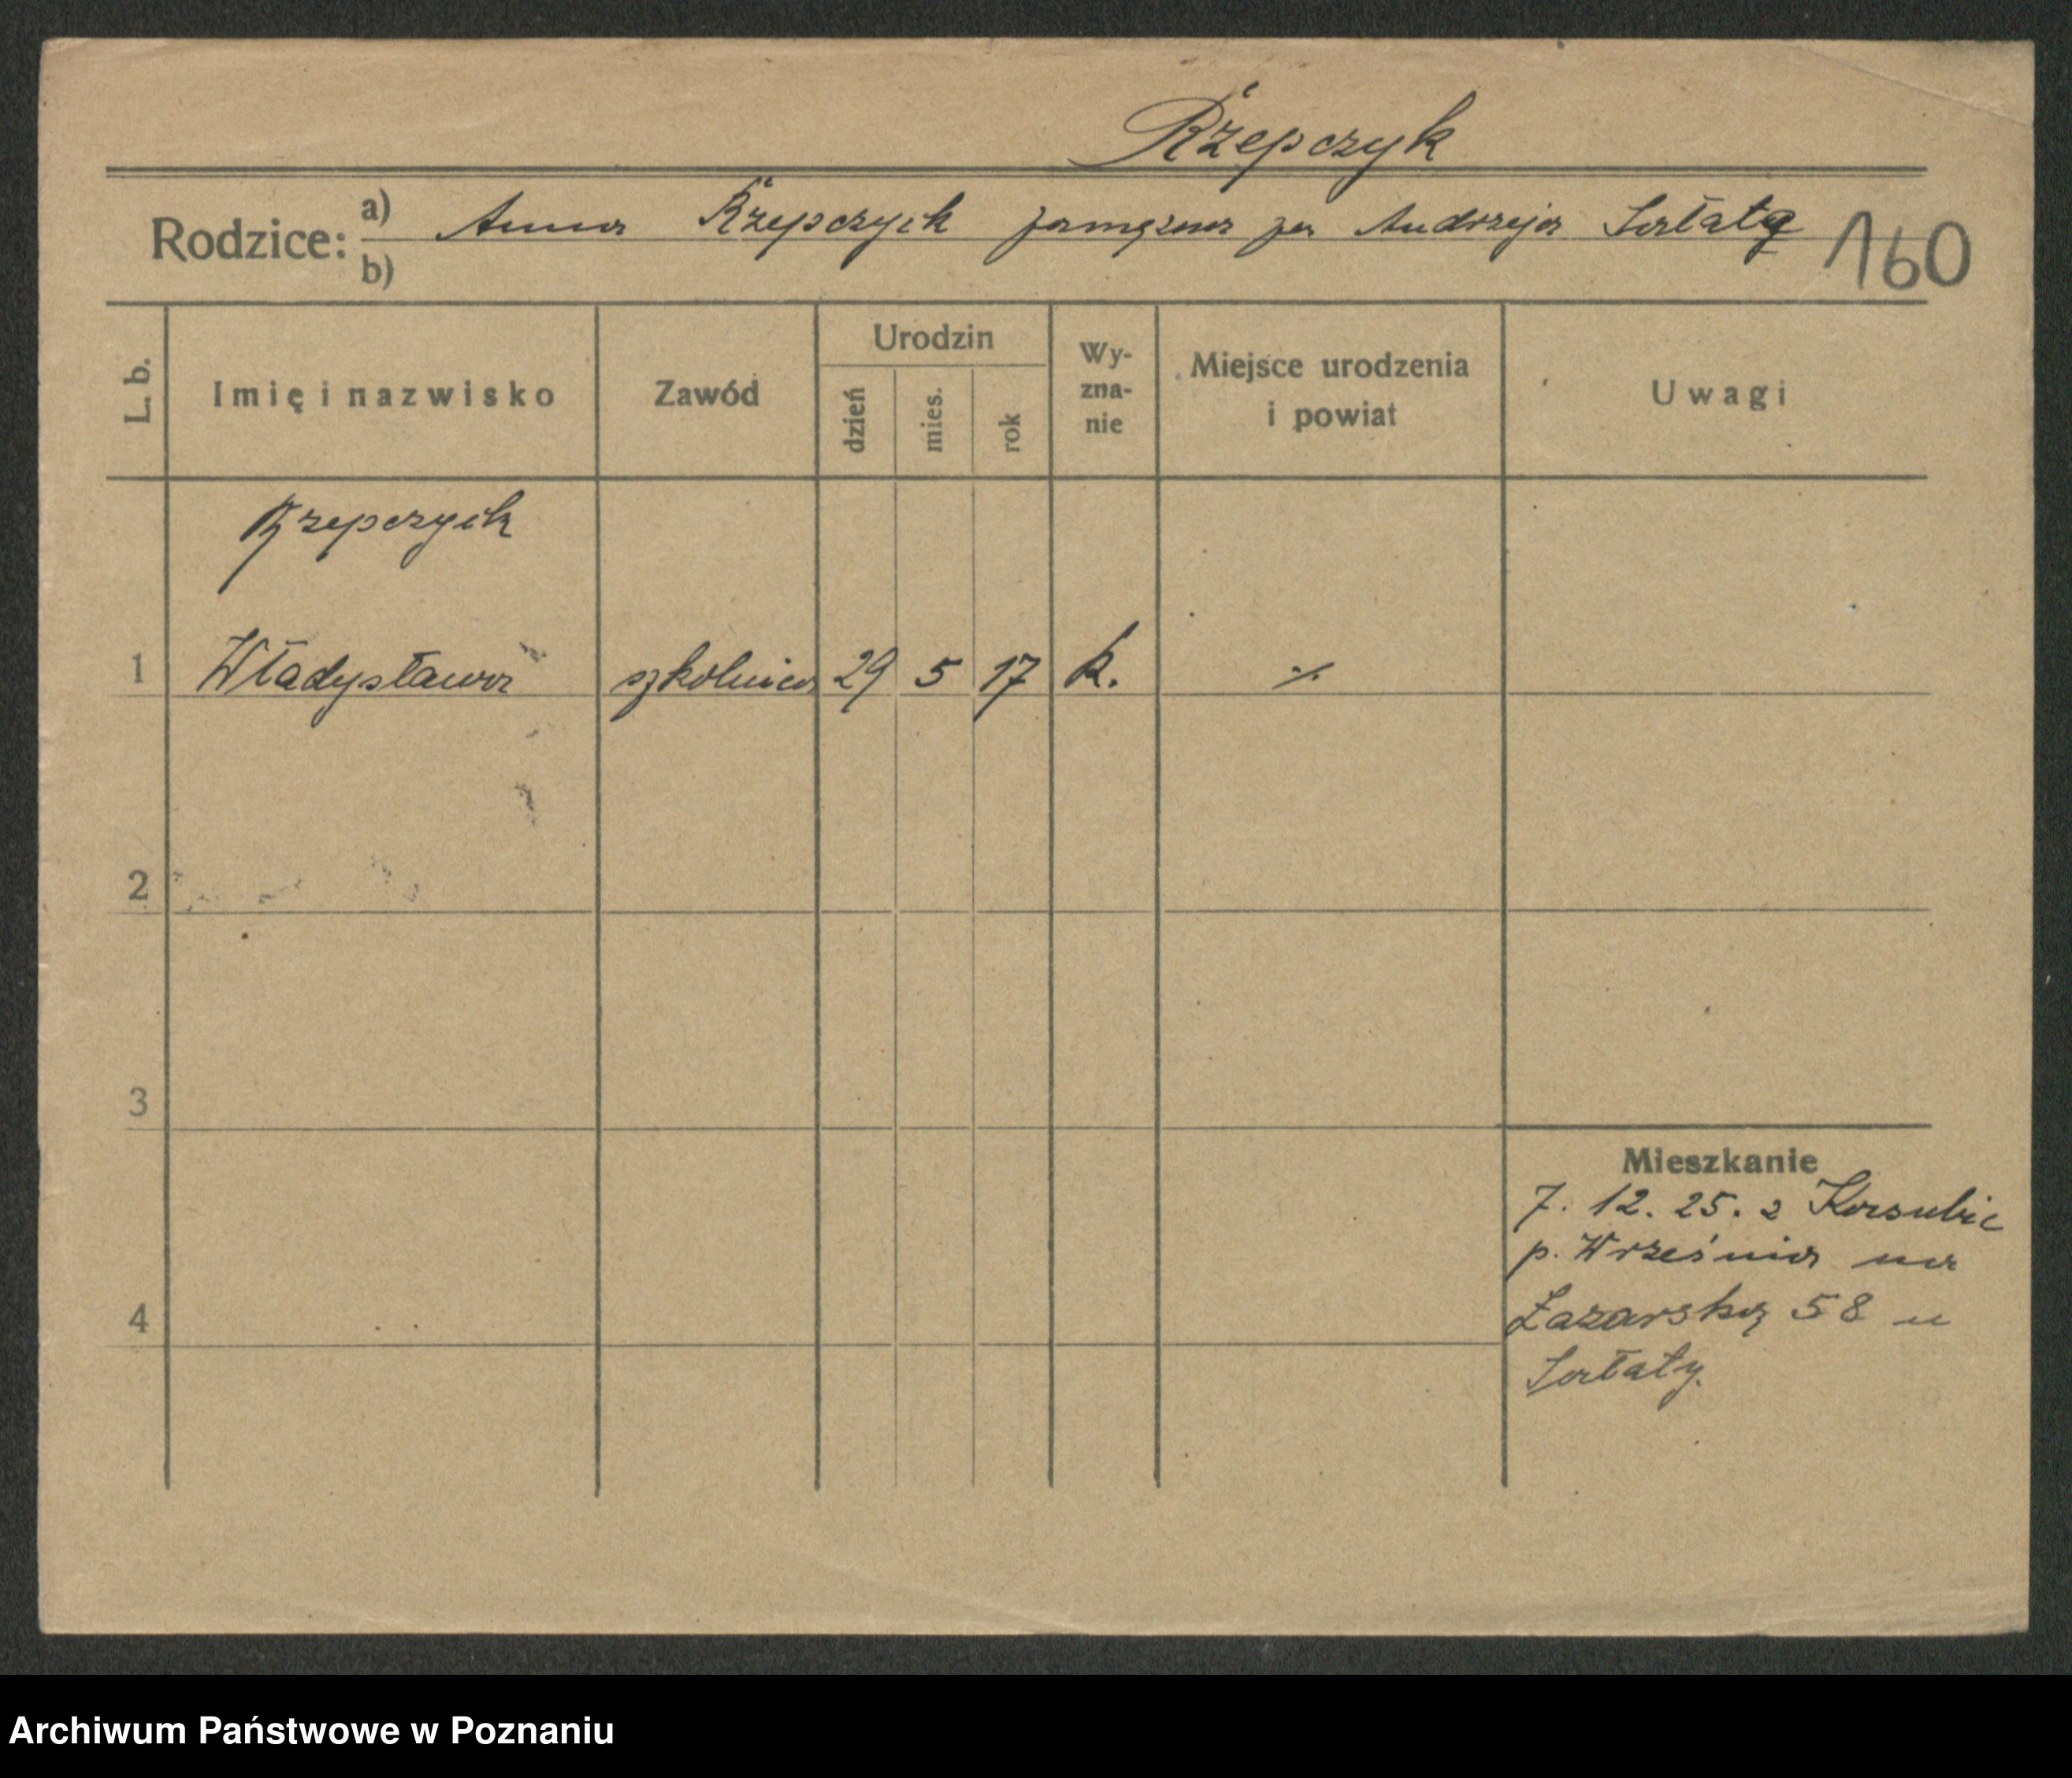 Rzepczyk
Rodzice: a) Anna Rzepczyk zamężna za Andrzeja Sałatę
b)
160
L. b. Imię i nazwisko Zawód Urodzin dzień mies. rok Wy-zna-nie Miejsce urodzenia i powiat Uwagi
Rzepczyk
1 Władysława szkolnica 29 5 17 k. ⁒
2
3
Mieszkanie
7. 12. 25. z
p. Września na
4 Łazarską 58 u
Sałaty.
Archiwum Państwowe w Poznaniu